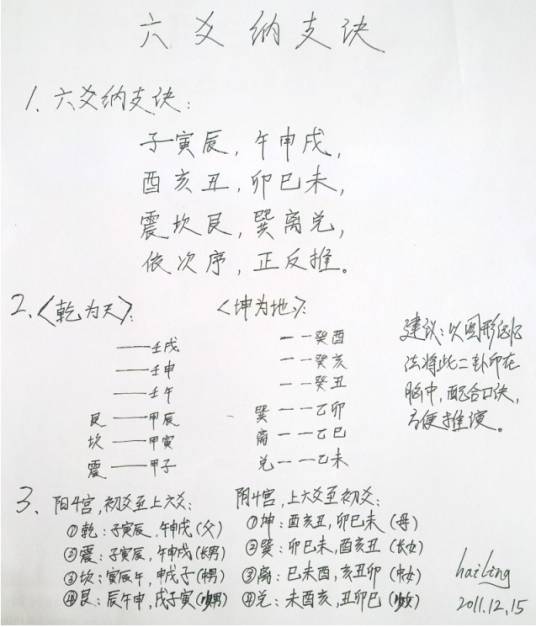 六爻纳支诀
1、六爻纳支诀:
子寅辰,午申戌,
酉亥丑,卯巳未,
震坎艮,巽离兑,
依次序,正反推。
2、〈乾为天〉:
——壬戌
——壬申
——壬午
艮——甲辰
坎——甲寅
震——甲子
〈坤为地〉:
— —癸酉
— —癸亥
— —癸丑
巽— —乙卯
离— —乙巳
兑— —乙未
建议:以图形记忆
法将此二卦印在
脑中,配合口诀,
方便推演。
3、阳4宫,初爻至上六爻:
①乾:子寅辰,午申戌(父)
②震:子寅辰,午申戌(长男)
③坎:寅辰午,申戌子(中男)
④艮:辰午申,戌子寅(少男)
阴4宫,上六爻至初爻:
①坤:酉亥丑,卯巳未(母)
②巽:卯巳未,酉亥丑(长女)
③离:巳未酉,亥丑卯(中女)
④兑:未酉亥,丑卯巳(少女)
hailing
2011.12.15